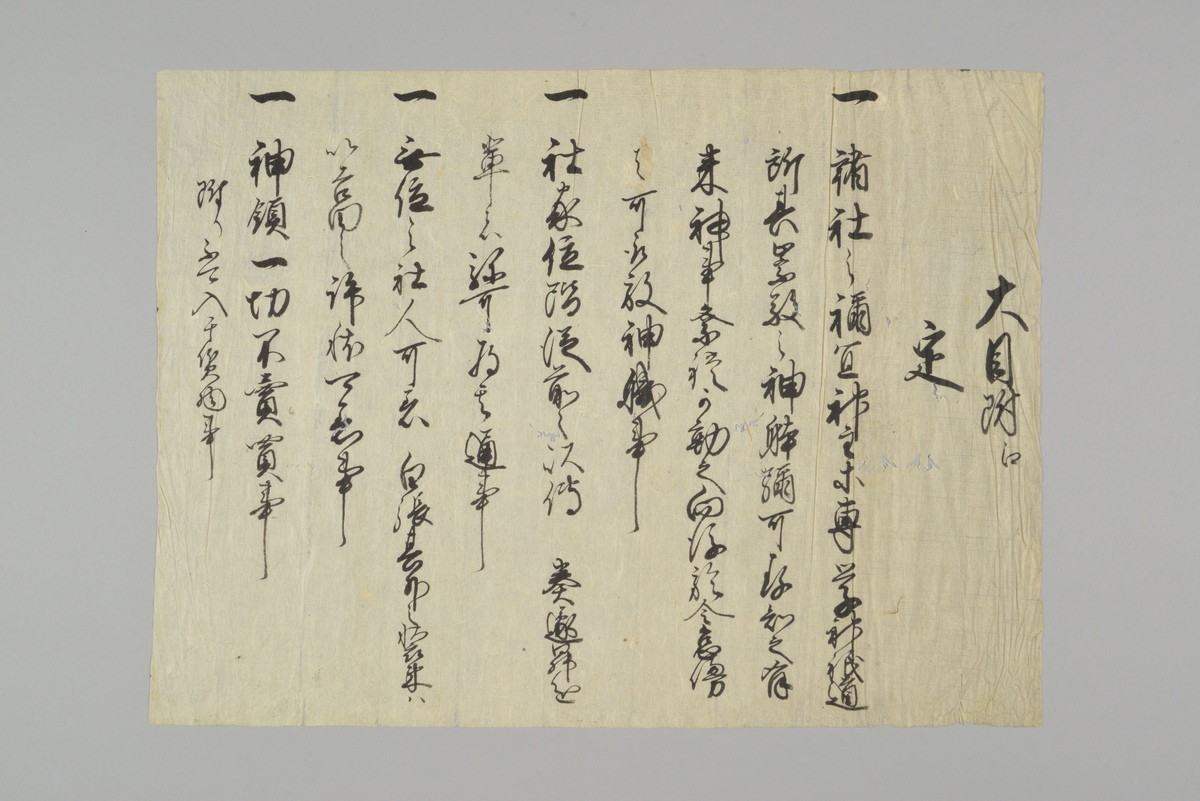 大目附江
定
一 諸社之禰宜神主等専学神祇道
所其崇敬之神躰彌可存知之有
来神事祭礼可勤之向後於令怠慢
者可取放神職事
一 社家位階従前々以傳 奏遂昇進
輩者弥可為其通事
一 無位之社人可着 白張其外之装束ハ
以吉田之許状可着事
一 神領一切不賣買事
附り不可入于質物事